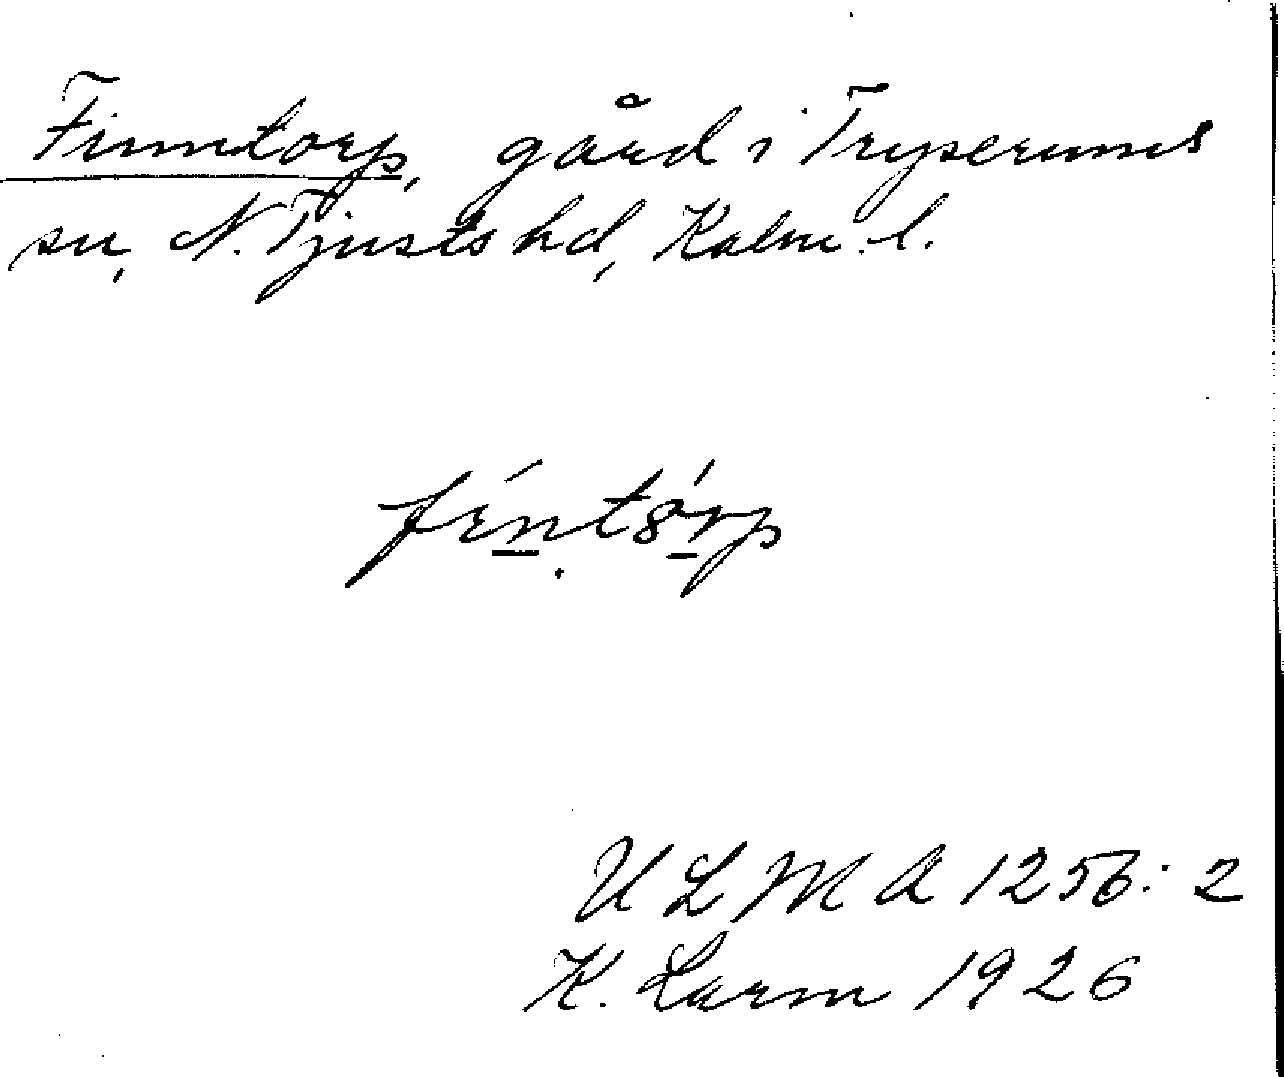 Finntorp, gård i Tryserums
sn, N. Tjusts hd, Kalm. l.
fintorp
U L M A 1256:2
K. Larm 1926